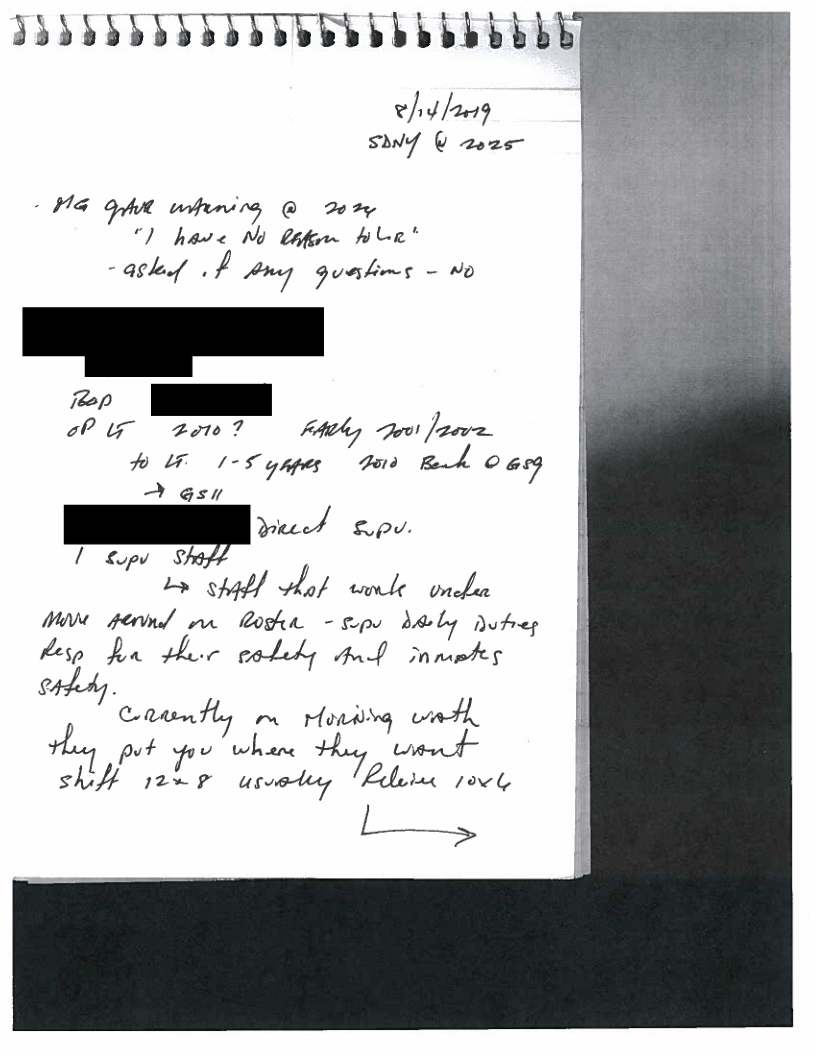 8/14/2019
SDNY @ 2025
- MG gave warning @ 2024
"I have No Reason to Lie".
- asked if Any questions - NO
BOP
OP LT 2010? EARly 2001/2002
to LT. 1-5 years 2010 Back @ GS9
→ GS11
Direct Supv.
1 Supv Staff
↳ Staff that work under
Move Around on Roster - Supv Daily Duties
Resp for their safety And inmates
Safety.
Currently on Morning watch
they put you where they want
shift 12x8 usually Relieve 10x6